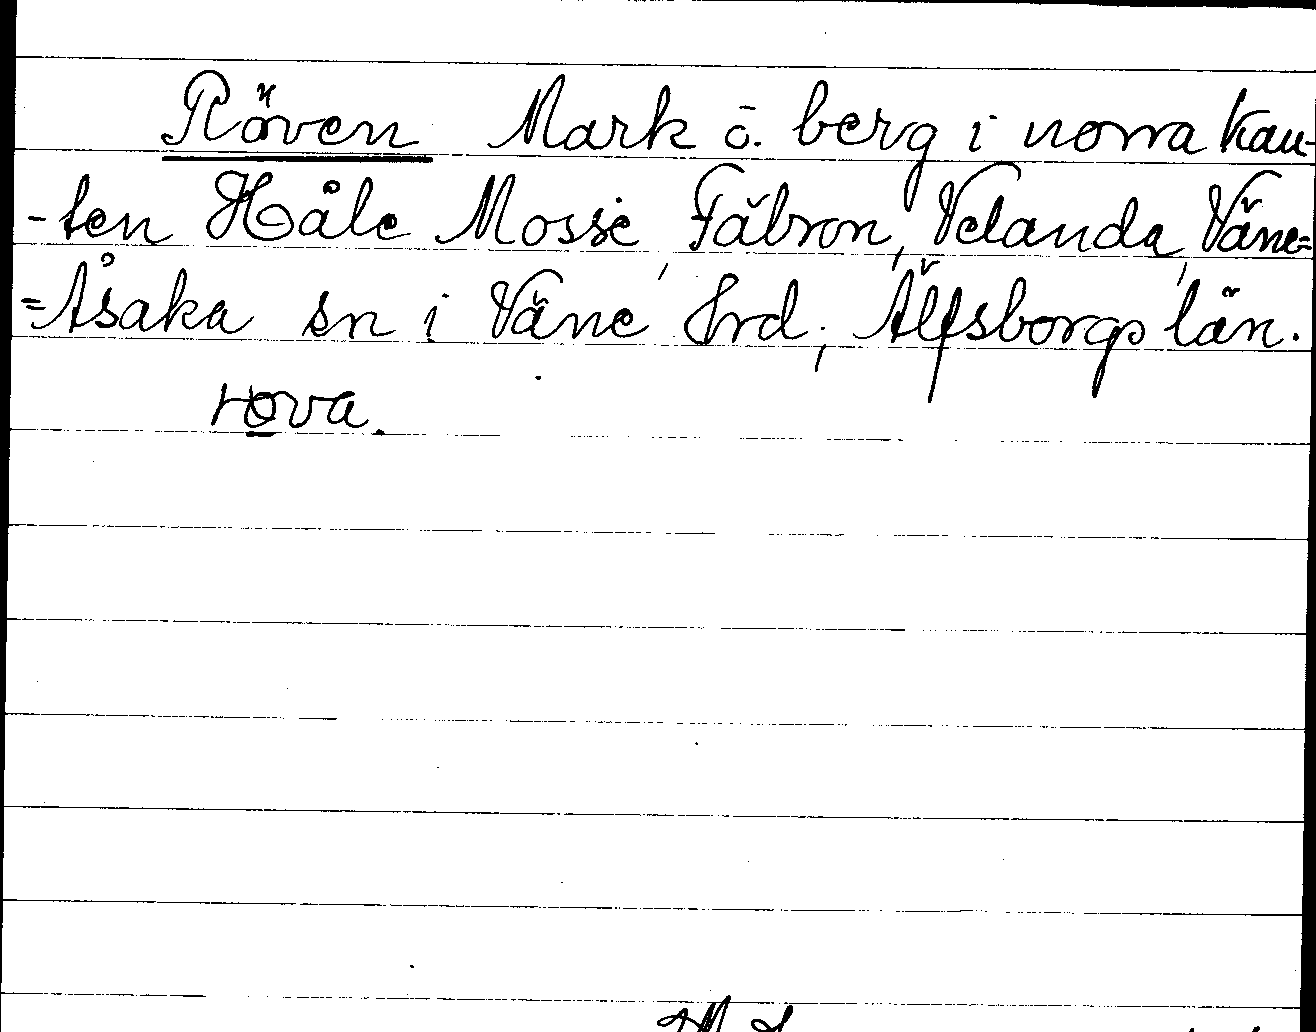 Röven Mark o. berg i norra kan-
-ten Håle Mosse, Fäbron, Velanda, Väne=
=Åsaka sn i Väne Hrd; Älfsborgs län.
rova.